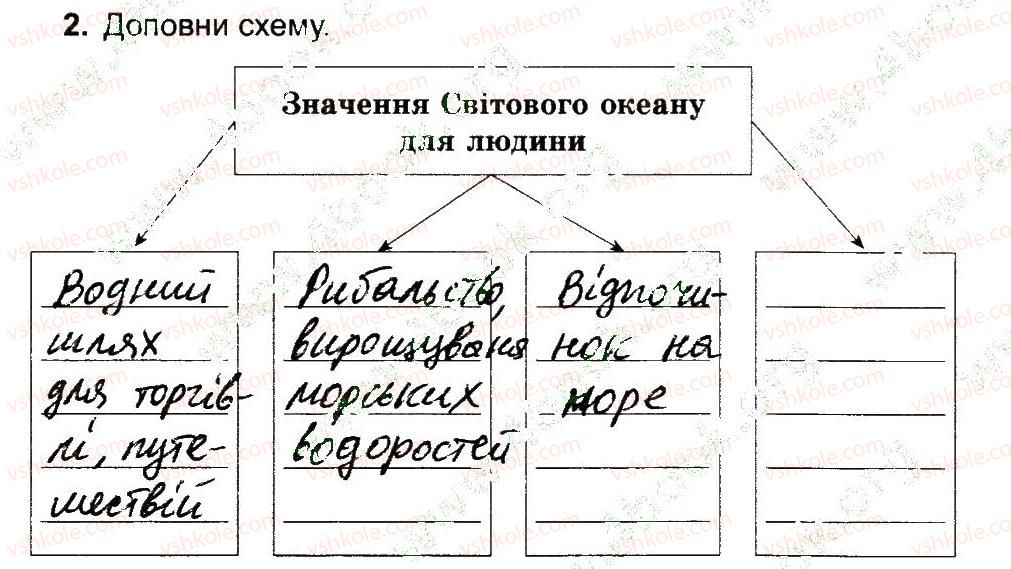 2. Доповни схему.
Значення Світового океану
для людини
Водний
шлях
для торгів-
лі, путе-
шествій
Рибальство,
вирощуваня
морських
водоростей
Відпочи-
нок на
море